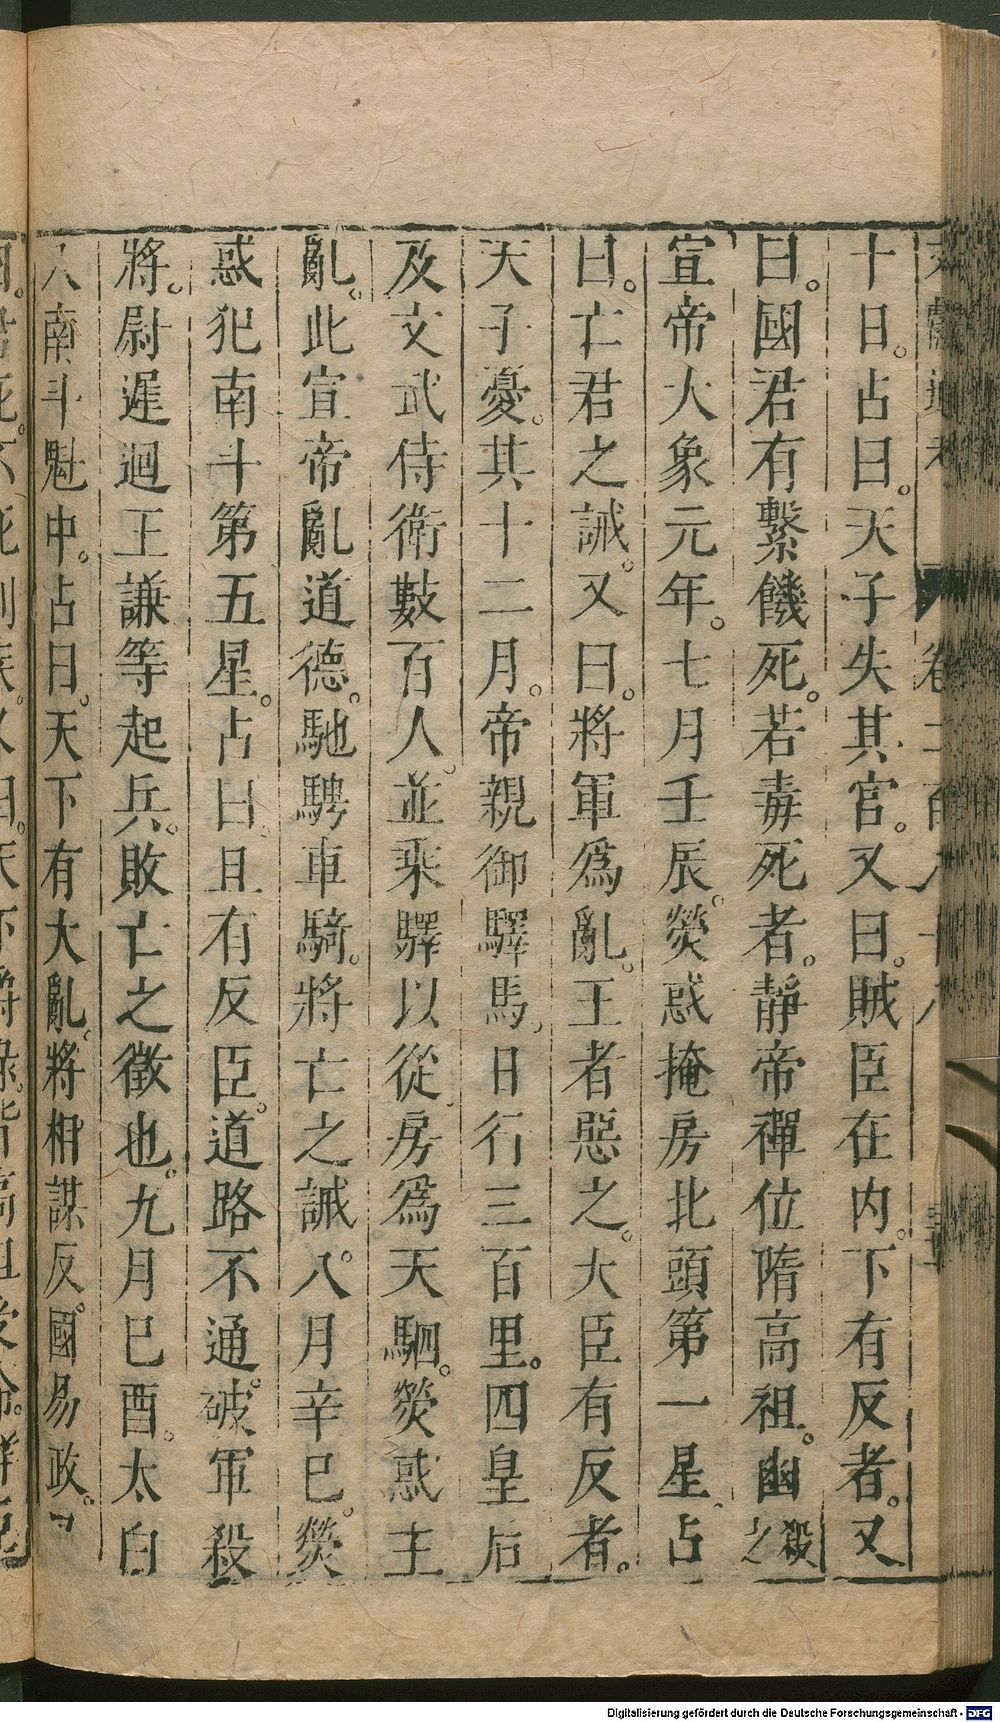 文獻通考 卷二百八十八
十日。占曰。天子失其宫。又曰。賊臣在内。下有反者。又
曰。國君有繫饑死。若毒死者。靜帝禪位隋高祖。幽殺之
宣帝大象元年。七月壬辰。熒惑掩房北頭第一星。占
曰。亡君之誡。又曰。將軍爲亂。王者惡之。大臣有反者。
天子憂。其十二月。帝親御驛馬。日行三百里。四皇后
及文武侍衛數百人。並乘驛以從。房爲天駟。熒惑主
亂。此宣帝亂道德。馳騁車騎。將亡之誡。八月辛巳。熒
惑犯南斗第五星。占曰。且有反臣。道路不通。破軍殺
將。尉遲迴王謙等起兵。敗亡之徵也。九月巳酉。太白
入南斗魁中。占曰。天下有大亂。將相謀反。國易政。又
曰。君死。不死則疾。又曰。天下爵祿。皆高祖受命。羣
Digitalisierung gefördert durch die Deutsche Forschungsgemeinschaft - DFG